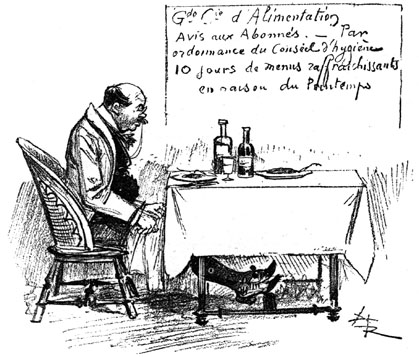 Gde Cie d'Alimentation
Avis aux Abonnés. — Par
ordonnance du Conseil d'hygiène
10 jours de menus raffraichissants
en raison du Printemps